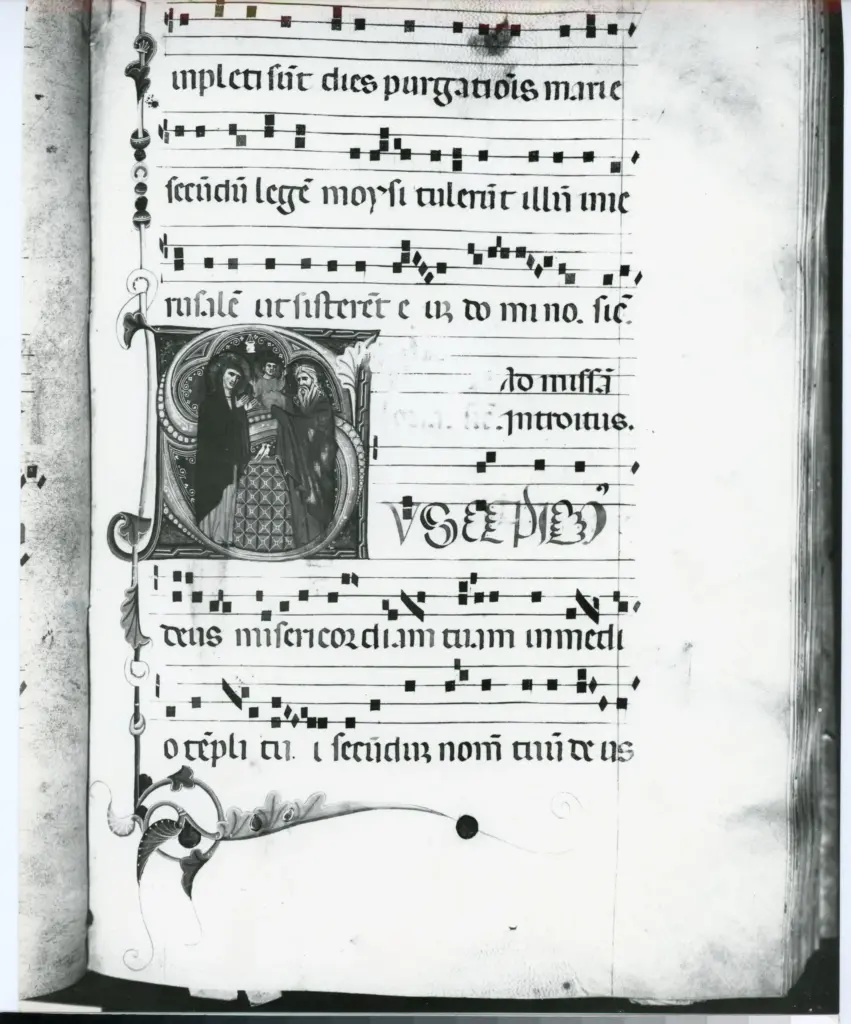 inpleti sūt dies purgatiōis marie
secūdū legē moysi tulerūt illū in ie
rusalē ut sisterēt e uʒ do mino. sic̄.
Ad missā
Introitus.
SUSCEPIMꝰ
deus misericordiam tuam in medi
o tēpli tu i secūduʒ nom̄ tuū de us